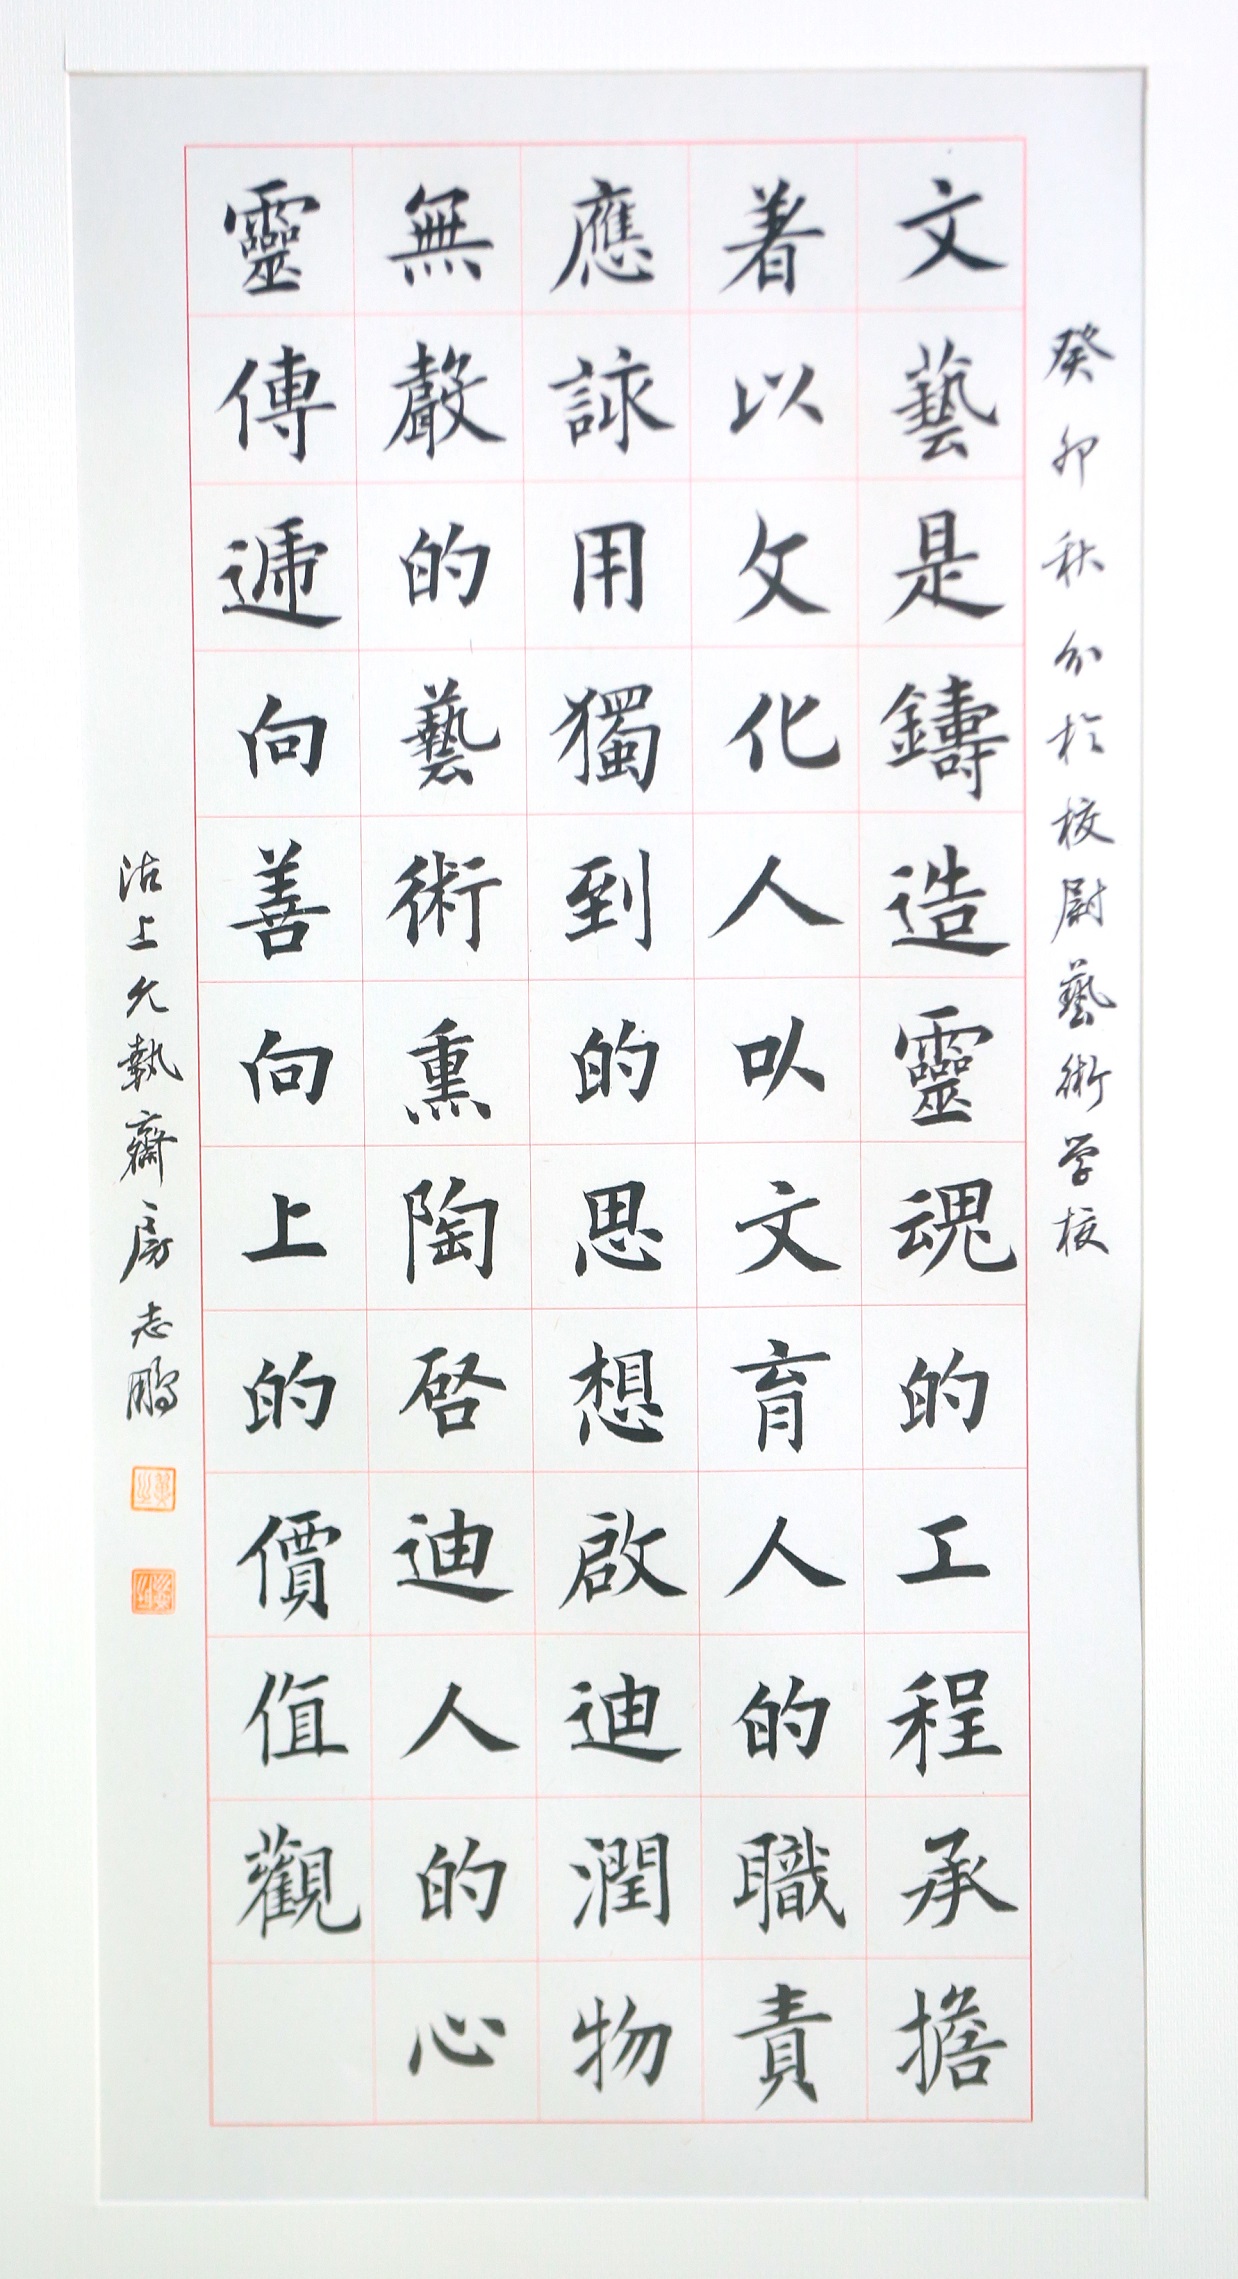 癸卯秋分於校尉藝術学校
文藝是鑄造靈魂的工程承擔
著以文化人以文育人的職責
應詠用獨到的思想啟迪潤物
無聲的藝術熏陶啓迪人的心
靈傳遞向善向上的價值觀
沽上久執齋房志鵬